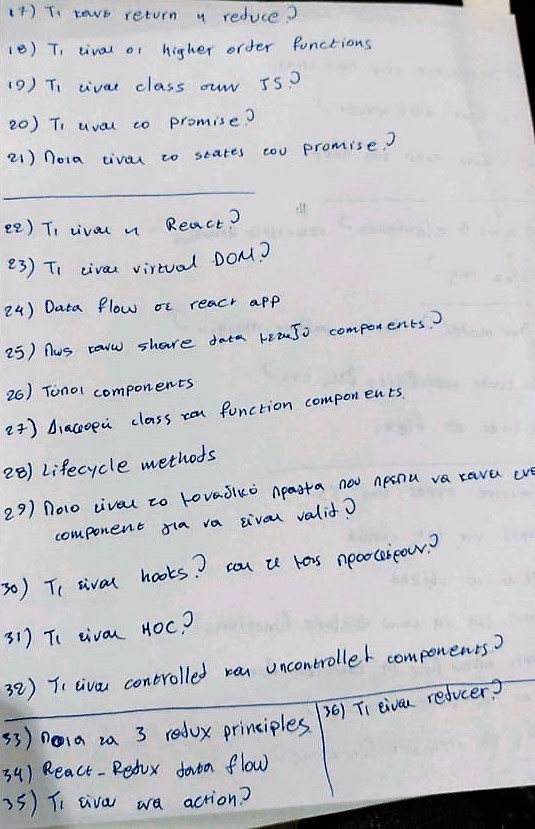 17) Τι κανει return η reduce?
18) Τι ειναι οι higher order functions
19) Τι ειναι class στην JS?
20) Τι ειναι το promise?
21) Ποια ειναι το states του promise?
22) Τι ειναι η React?
23) Τι ειναι virtual DOM?
24) Data flow σε react app
25) Πως κανω share data μεταξύ components?
26) Τύποι components
27) Διαφορά class και function components.
28) Lifecycle methods
29) Ποιο ειναι το μοναδικό πραγμα που πρεπει να κανει ενα
component για να ειναι valid?
30) Τι ειναι hooks? και τι μας προσφέρουν?
31) Τι ειναι HOC?
32) Τι ειναι controlled και uncontrolled components?
33) Ποια τα 3 redux principles
34) React-Redux data flow
35) Τι ειναι ενα action?
36) Τι ειναι reducer?